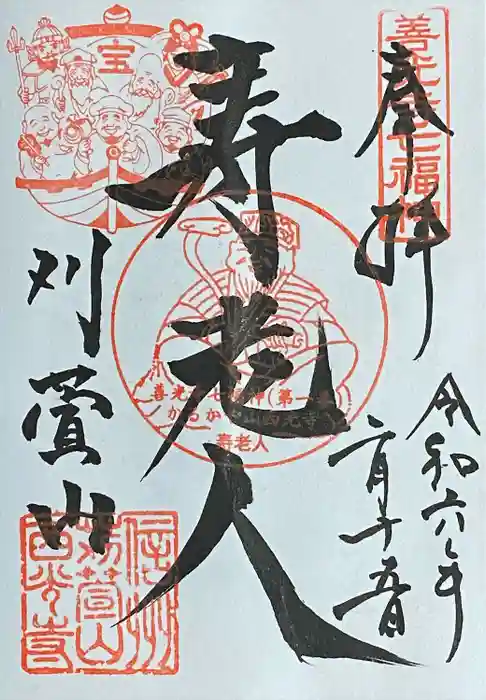 奉拝
善光寺七福神
令和六年
二月十五日
寿老人
宝
善光寺七福神(第一番)
かるかや山西光寺
寿老人
刈萱山
信州
苅萱山
西光寺